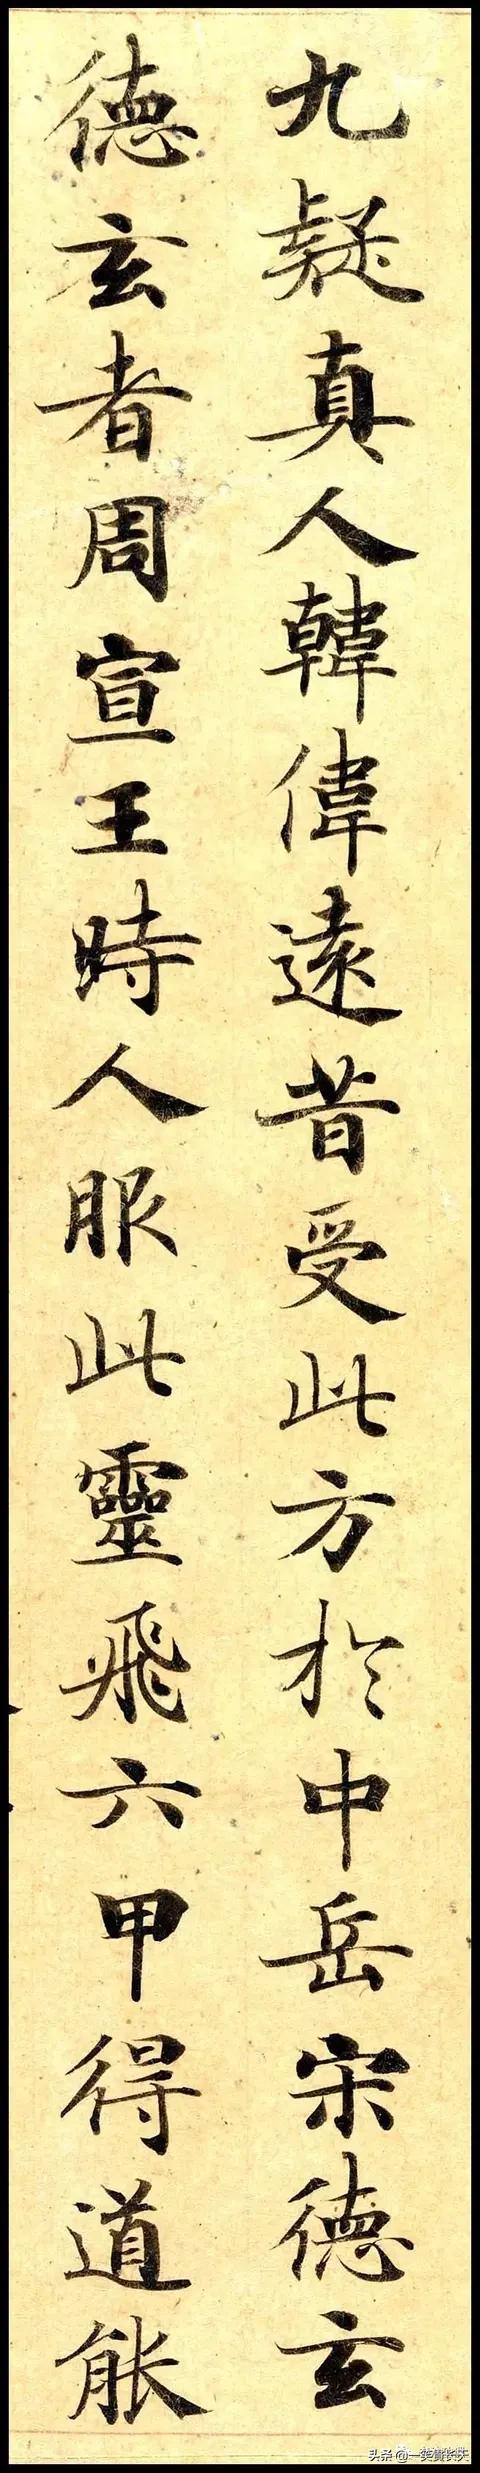 九疑真人韓偉遠昔受此方於中岳宋德玄
德玄者周宣王時人服此靈飛六甲得道能